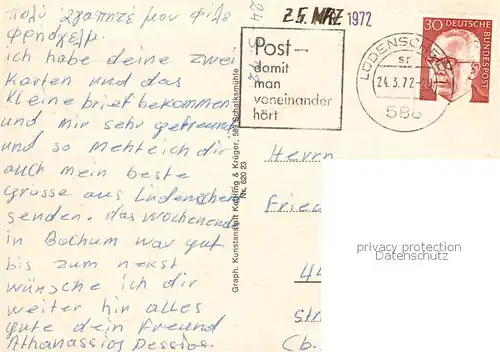 πολύ αγαπητέ μου φίλε
ich habe deine zwei
Karten und das
kleine brief bekommen
und mir sehr gefreund
und so Mehteich dir
auch mein beste
grüsse aus Lüdenscheid
senden. das wochenend
in Bochum war gut
bis zum nekst
wünsche ich dir
weiter hin alles
gute dein Freund
Athanassios Dessios.
Graph. Kunstanstalt Kettling & Krüger, 588 Schalksmühle
Nr. 620 23
25. MRZ 1972
Post-
damit
man
voneinander
hört
LÜDENSCHEID
sr
24.3.72-20
588
30 DEUTSCHE
BUNDESPOST
Herrn
Frie
44
str
(b.
privacy protection
Datenschutz